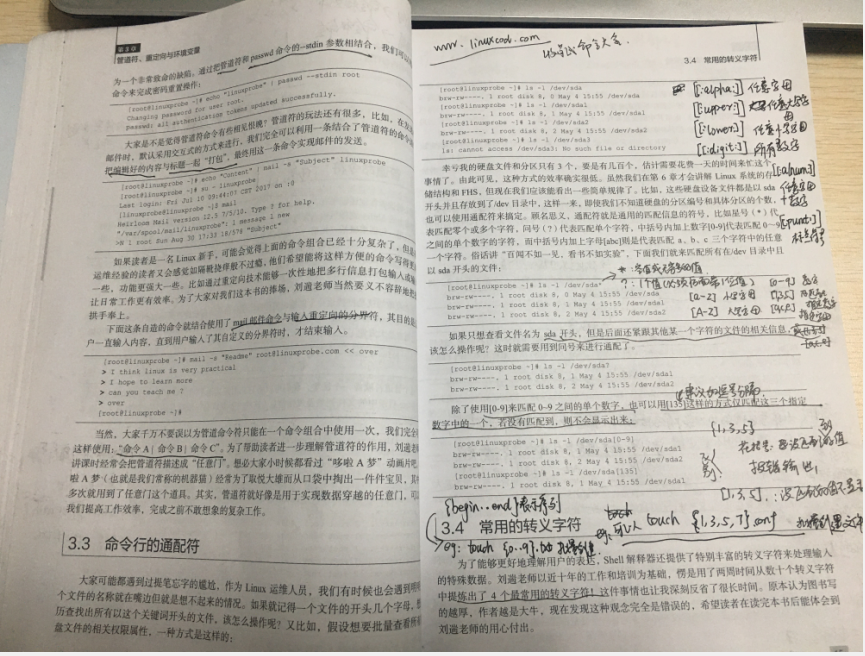 第3章
管道符、重定向与环境变量
为一个非常致命的缺陷。通过把管道符和 passwd 命令的--stdin 参数相结合，我们可以
命令来完成密码重置操作：
[root@linuxprobe ~]# echo "linuxprobe" | passwd --stdin root
Changing password for user root.
passwd: all authentication tokens updated successfully.
大家是不是觉得管道符命令有些相见恨晚？管道符的玩法还有很多，比如，在发
邮件时，默认采用交互式的方式来进行，我们完全可以利用一条结合了管道符的命令
把编辑好的内容与标题一起"打包"，最终用这一条命令实现邮件的发送。
[root@linuxprobe ~]# echo "Content" | mail -s "Subject" linuxprobe
[root@linuxprobe ~]# su - linuxprobe
Last login: Fri Jul 10 09:44:07 CST 2017 on :0
[linuxprobe@linuxprobe ~]$ mail
Heirloom Mail version 12.5 7/5/10. Type ? for help.
"/var/spool/mail/linuxprobe": 1 message 1 new
>N 1 root Sun Aug 30 17:33 18/578 "Subject"
如果读者是一名 Linux 新手，可能会觉得上面的命令组合已经十分复杂了，但是
运维经验的读者又会感觉如隔靴挠痒般不过瘾，他们希望能将这样方便的命令写得更
一些，功能更强大一些。比如通过重定向技术能够一次性地把多行信息打包输入或输
让日常工作更有效率。为了大家对我们这本书的捧场，刘遄老师当然要义不容辞地把
拱手奉上。
下面这条自造的命令就结合使用了 mail 邮件命令与输入重定向的分界符，其目的是
户一直输入内容，直到用户输入了其自定义的分界符时，才结束输入。
[root@linuxprobe ~]# mail -s "Readme" root@linuxprobe.com << over
> I think linux is very practical
> I hope to learn more
> can you teach me ?
> over
[root@linuxprobe ~]#
当然，大家千万不要误以为管道命令符只能在一个命令组合中使用一次，我们完全
这样使用："命令 A | 命令 B | 命令 C"。为了帮助读者进一步理解管道符的作用，刘遄老
讲课时经常会把管道符描述成"任意门"。想必大家小时候都看过"哆啦 A 梦"动画片吧
啦 A 梦（也就是我们常称的机器猫）经常为了取悦大雄而从口袋中掏出一件件宝贝，其
多次就用到了任意门这个道具。其实，管道符就好像是用于实现数据穿越的任意门，可以
我们提高工作效率，完成之前不敢想象的复杂工作。
3.3 命令行的通配符
大家可能都遇到过提笔忘字的尴尬，作为 Linux 运维人员，我们有时候也会遇到明明
个文件的名称就在嘴边但就是想不起来的情况。如果就记得一个文件的开头几个字母，想
历查找出所有以这个关键词开头的文件，该怎么操作呢？又比如，假设想要批量查看所有
盘文件的相关权限属性，一种方式是这样的：
www.linuxcool.com
3.4 常用的转义字符
[root@linuxprobe ~]# ls -l /dev/sda
brw-rw----. 1 root disk 8, 0 May 4 15:55 /dev/sda
[root@linuxprobe ~]# ls -l /dev/sda1
brw-rw----. 1 root disk 8, 1 May 4 15:55 /dev/sda1
[root@linuxprobe ~]# ls -l /dev/sda2
brw-rw----. 1 root disk 8, 2 May 4 15:55 /dev/sda2
[root@linuxprobe ~]# ls -l /dev/sda3
ls: cannot access /dev/sda3: No such file or directory
[[:alpha:]] 任意字母
[[:upper:]] 任意大写字母
[[:lower:]] 任意小写字母
[[:digit:]] 所有数字
幸亏我的硬盘文件和分区只有 3 个，要是有几百个，估计需要花费一天的时间来忙这个
事情了。由此可见，这种方式的效率确实很低。虽然我们在第 6 章才会讲解 Linux 系统的存
储结构和 FHS，但现在我们应该能看出一些简单规律了。比如，这些硬盘设备文件都是以 sda
开头并且存放到了/dev 目录中，这样一来，即使我们不知道硬盘的分区编号和具体分区的个数，
也可以使用通配符来搞定。顾名思义，通配符就是通用的匹配信息的符号，比如星号（*）代
表匹配零个或多个字符，问号（?）代表匹配单个字符，中括号内加上数字[0-9]代表匹配 0~9
之间的单个数字的字符，而中括号内加上字母[abc]则是代表匹配 a、b、c 三个字符中的任意
一个字符。俗话讲"百闻不如一见，看书不如实验"，下面我们就来匹配所有在/dev 目录中且
以 sda 开头的文件：
[root@linuxprobe ~]# ls -l /dev/sda*
brw-rw----. 1 root disk 8, 0 May 4 15:55 /dev/sda
brw-rw----. 1 root disk 8, 1 May 4 15:55 /dev/sda1
brw-rw----. 1 root disk 8, 2 May 4 15:55 /dev/sda2
[0-9] 数字
[a-z] 小字母
[A-Z] 大字母
如果只想查看文件名为 sda 开头，但是后面还紧跟其他某一个字符的文件的相关信息，
该怎么操作呢？这时就需要用到问号来进行通配了。
[root@linuxprobe ~]# ls -l /dev/sda?
brw-rw----. 1 root disk 8, 1 May 4 15:55 /dev/sda1
brw-rw----. 1 root disk 8, 2 May 4 15:55 /dev/sda2
除了使用[0-9]来匹配 0~9 之间的单个数字，也可以用[135]这样的方式仅匹配这三个指定
数字中的一个，若没有匹配到，则不会显示出来：
[root@linuxprobe ~]# ls -l /dev/sda[0-9]
brw-rw----. 1 root disk 8, 1 May 4 15:55 /dev/sda1
brw-rw----. 1 root disk 8, 2 May 4 15:55 /dev/sda2
[root@linuxprobe ~]# ls -l /dev/sda[135]
brw-rw----. 1 root disk 8, 1 May 4 15:55 /dev/sda1
{1,3,5}
{begin..end}表示序列
3.4 常用的转义字符
touch {1,3,5,7}.conf
eg: touch {0..9}.txt
为了能够更好地理解用户的表达，Shell 解释器还提供了特别丰富的转义字符来处理输入
的特殊数据。刘遄老师以近十年的工作和培训为基础，愣是用了两周时间从数十个转义字符
中提炼出了 4 个最常用的转义字符！这件事情也让我深刻反省了很长时间。原本认为图书写
的越厚，作者越是大牛，现在发现这种观念完全是错误的，希望读者在读完本书后能体会到
刘遄老师的用心付出。